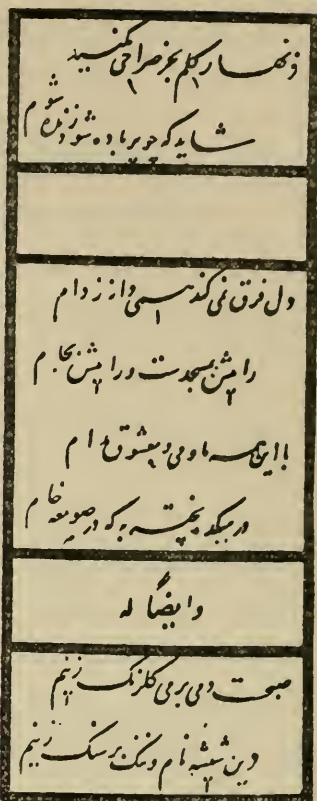 زنهار گلم بجز صراحی مکنید
شاید که چو پر باده شود زنده شوم
دل فرق نمی کند همی دانه ز دام
رائیش بمسجدست و رائیش بجام
با این همه ما و می و معشوق مدام
در میکده پخته به که در صومعه خام
وایضاً له
صبحست دمی بر می گلرنگ زنیم
وین شیشه نام و ننگ بر سنگ زنیم